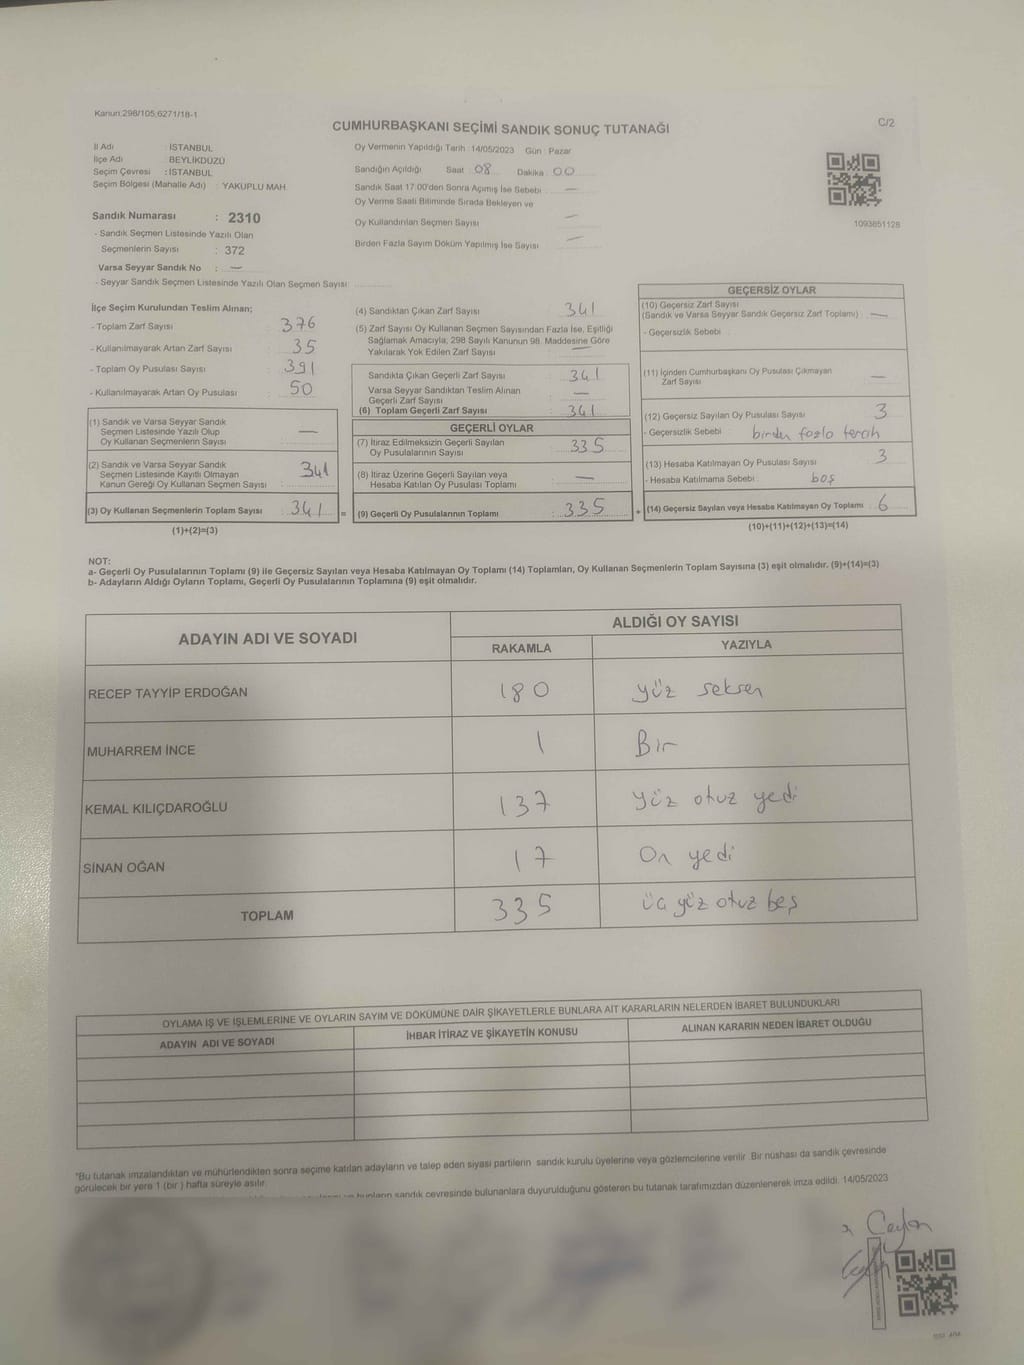 Kanun:298/105;6271/18-1
CUMHURBAŞKANI SEÇİMİ SANDIK SONUÇ TUTANAĞI
C/2
İl Adı : İSTANBUL
İlçe Adı : BEYLİKDÜZÜ
Seçim Çevresi : İSTANBUL
Seçim Bölgesi (Mahalle Adı) : YAKUPLU MAH.
Sandık Numarası : 2310
- Sandık Seçmen Listesinde Yazılı Olan
Seçmenlerin Sayısı : 372
Varsa Seyyar Sandık No : —
- Seyyar Sandık Seçmen Listesinde Yazılı Olan Seçmen Sayısı:
Oy Vermenin Yapıldığı Tarih : 14/05/2023 Gün : Pazar
Sandığın Açıldığı Saat : 08 Dakika : 00
Sandık Saat 17.00'den Sonra Açımış İse Sebebi : —
Oy Verme Saati Bitiminde Sırada Bekleyen ve
Oy Kullandırılan Seçmen Sayısı —
Birden Fazla Sayım Döküm Yapılmış İse Sayısı —
1093851128
İlçe Seçim Kurulundan Teslim Alınan;
- Toplam Zarf Sayısı : 376
- Kullanılmayarak Artan Zarf Sayısı : 35
- Toplam Oy Pusulası Sayısı : 391
- Kullanılmayarak Artan Oy Pusulası : 50
(1) Sandık ve Varsa Seyyar Sandık
Seçmen Listesinde Yazılı Olup
Oy Kullanan Seçmenlerin Sayısı : —
(2) Sandık ve Varsa Seyyar Sandık
Seçmen Listesinde Kayıtlı Olmayan
Kanun Gereği Oy Kullanan Seçmen Sayısı : 341
(3) Oy Kullanan Seçmenlerin Toplam Sayısı : 341 =
(1)+(2)=(3)
(4) Sandıktan Çıkan Zarf Sayısı : 341
(5) Zarf Sayısı Oy Kullanan Seçmen Sayısından Fazla İse, Eşitliği
Sağlamak Amacıyla, 298 Sayılı Kanunun 98. Maddesine Göre
Yakılarak Yok Edilen Zarf Sayısı : —
Sandıkta Çıkan Geçerli Zarf Sayısı : 341
Varsa Seyyar Sandıktan Teslim Alınan
Geçerli Zarf Sayısı : —
(6) Toplam Geçerli Zarf Sayısı : 341
GEÇERLİ OYLAR
(7) İtiraz Edilmeksizin Geçerli Sayılan
Oy Pusulalarının Sayısı : 335
(8) İtiraz Üzerine Geçerli Sayılan veya
Hesaba Katılan Oy Pusulası Toplamı : —
(9) Geçerli Oy Pusulalarının Toplamı : 335 +
GEÇERSİZ OYLAR
(10) Geçersiz Zarf Sayısı
(Sandık ve Varsa Seyyar Sandık Geçersiz Zarf Toplamı) : —
- Geçersizlik Sebebi :
(11) İçinden Cumhurbaşkanı Oy Pusulası Çıkmayan
Zarf Sayısı : —
(12) Geçersiz Sayılan Oy Pusulası Sayısı : 3
- Geçersizlik Sebebi : birden fazla tercih
(13) Hesaba Katılmayan Oy Pusulası Sayısı : 3
- Hesaba Katılmama Sebebi : boş
(14) Geçersiz Sayılan veya Hesaba Katılmayan Oy Toplamı : 6
(10)+(11)+(12)+(13)=(14)
NOT:
a- Geçerli Oy Pusulalarının Toplamı (9) ile Geçersiz Sayılan veya Hesaba Katılmayan Oy Toplamı (14) Toplamları, Oy Kullanan Seçmenlerin Toplam Sayısına (3) eşit olmalıdır. (9)+(14)=(3)
b- Adayların Aldığı Oyların Toplamı, Geçerli Oy Pusulalarının Toplamına (9) eşit olmalıdır.
ADAYIN ADI VE SOYADI
ALDIĞI OY SAYISI
RAKAMLA YAZIYLA
RECEP TAYYİP ERDOĞAN 180 yüz seksen
MUHARREM İNCE 1 Bir
KEMAL KILIÇDAROĞLU 137 yüz otuz yedi
SİNAN OĞAN 17 On yedi
TOPLAM 335 üç yüz otuz beş
OYLAMA İŞ VE İŞLEMLERİNE VE OYLARIN SAYIM VE DÖKÜMÜNE DAİR ŞİKAYETLERLE BUNLARA AİT KARARLARIN NELERDEN İBARET BULUNDUKLARI
ADAYIN ADI VE SOYADI İHBAR İTİRAZ VE ŞİKAYETİN KONUSU ALINAN KARARIN NEDEN İBARET OLDUĞU
*Bu tutanak imzalandıktan ve mühürlendikten sonra seçime katılan adayların ve talep eden siyasi partilerin sandık kurulu üyelerine veya gözlemcilerine verilir. Bir nüshası da sandık çevresinde
görülecek bir yere 1 (bir ) hafta süreyle asılır.
sandık çevresinde bulunanlara duyurulduğunu gösteren bu tutanak tarafımızdan düzenlenerek imza edildi. 14/05/2023
Ceylan